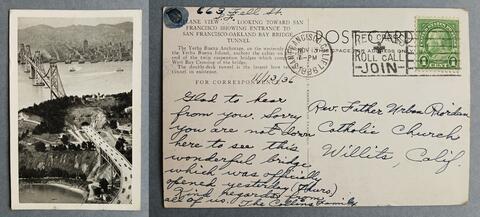 663 Fell St.
S.F.
PLANE VIEW LOOKING TOWARD SAN
FRANCISCO SHOWING ENTRANCE TO
SAN FRANCISCO-OAKLAND BAY BRIDGE
TUNNEL
The Yerba Buena Anchorage, on the
Yerba Buena Island, anchors the cables on
end of the twin suspension bridge which
West Bay Crossing of the bridge.
The double-deck tunnel is the largest bore
tunnel in existence.
FOR CORRESPONDENCE
11/13/36
Glad to hear
from you. Sorry
you are not down
here to see this
wonderful bridge
which was officially
opened yesterday (Thurs)
Kind regards from
all of us. The Collins Family
POST CARD
SPACE FOR ADDRESS ONLY
SAN FRANCISCO
NOV 13
PM
RED CROSS
ROLL CALL
JOIN
1
Rev. Father Urban Riordan
Catholic Church
Willits, Calif.